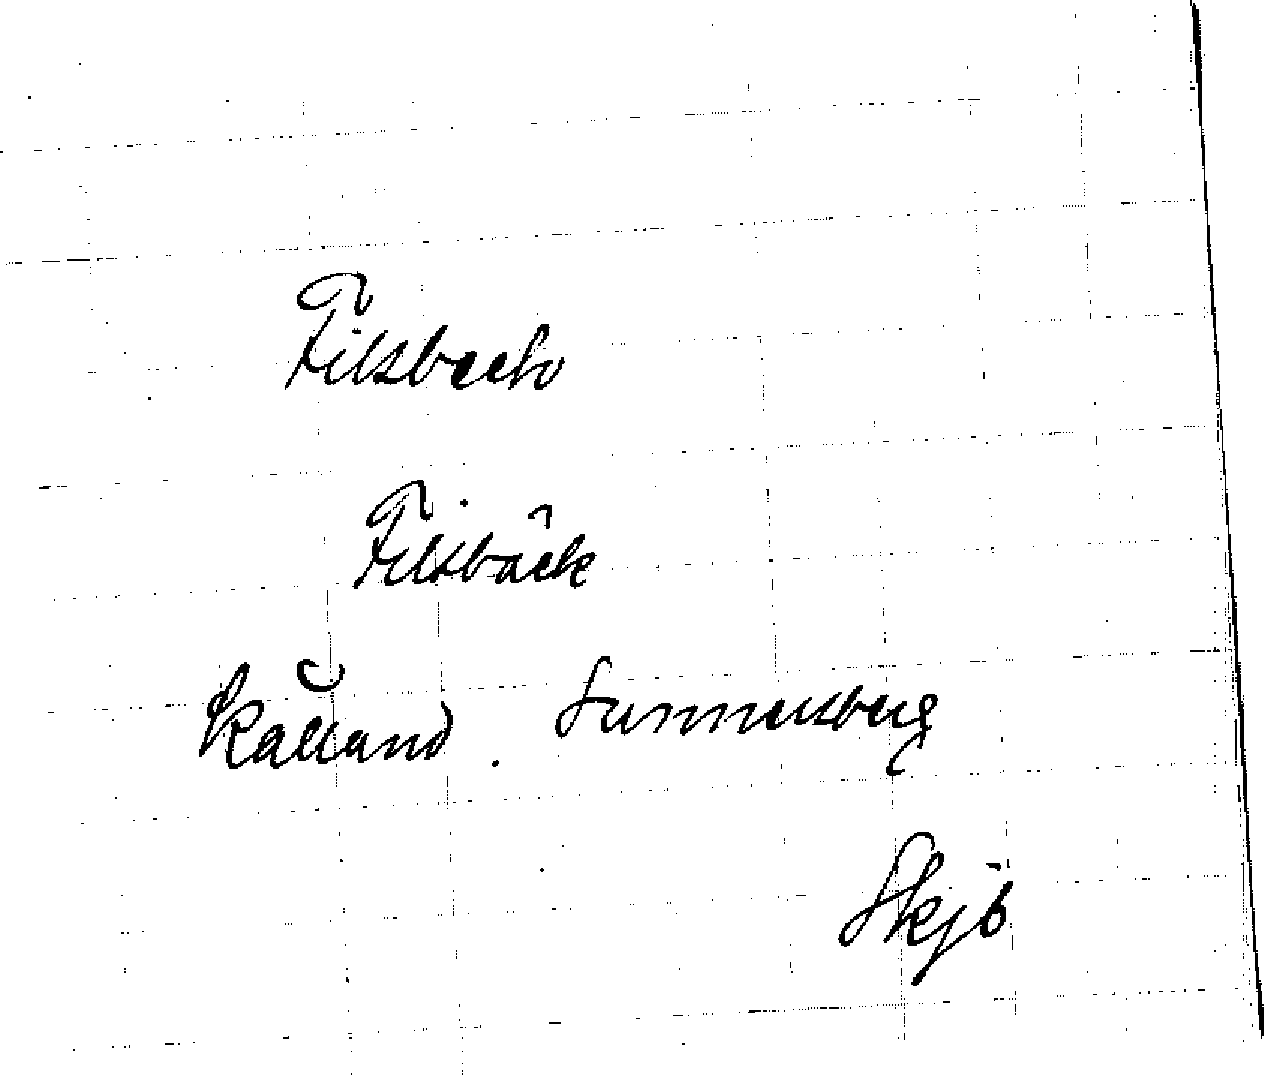 Filsbech
Filsbäck
Kålland. Sunnersberg
Skjb